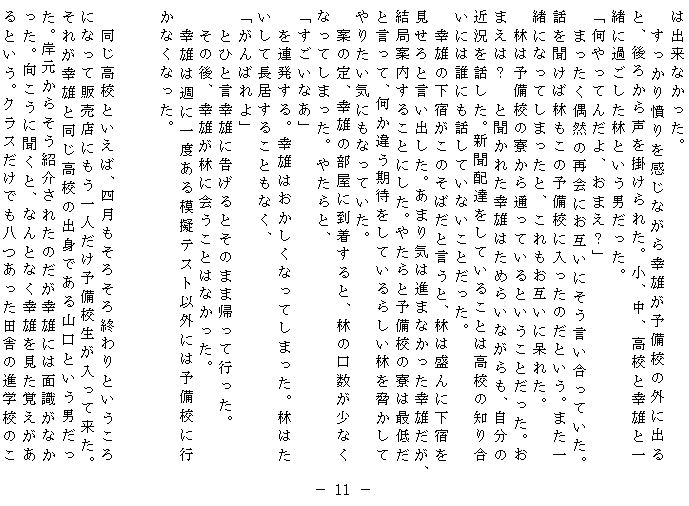 は出来なかった。
　すっかり憤りを感じながら幸雄が予備校の外に出る
と、後ろから声を掛けられた。小、中、高校と幸雄と一
緒に過ごした林という男だった。
「何やってんだよ、おまえ？」
　まったく偶然の再会にお互いにそう言い合っていた。
話を聞けば林もこの予備校に入ったのだという。また一
緒になってしまったと、これもお互いに呆れた。
　林は予備校の寮から通っているということだった。お
まえは？　と聞かれた幸雄はためらいながらも、自分の
近況を話した。新聞配達をしていることは高校の知り合
いには誰にも話していないことだった。
　幸雄の下宿がこのそばだと言うと、林は盛んに下宿を
見せろと言い出した。あまり気は進まなかった幸雄だが、
結局案内することにした。やたらと予備校の寮は最低だ
と言って、何か違う期待をしているらしい林を脅かして
やりたい気にもなっていた。
　案の定、幸雄の部屋に到着すると、林の口数が少なく
なってしまった。やたらと、
「すごいなあ」
　を連発する。幸雄はおかしくなってしまった。林はた
いして長居することもなく、
「がんばれよ」
　とひと言幸雄に告げるとそのまま帰って行った。
　その後、幸雄が林に会うことはなかった。
　幸雄は週に一度ある模擬テスト以外には予備校に行
かなくなった。
　同じ高校といえば、四月もそろそろ終わりというころ
になって販売店にもう一人だけ予備校生が入って来た。
それが幸雄と同じ高校の出身である山口という男だっ
た。岸元からそう紹介されたのだが幸雄には面識がなか
った。向こうに聞くと、なんとなく幸雄を見た覚えがあ
るという。クラスだけでも八つあった田舎の進学校のこ
－ 11 －